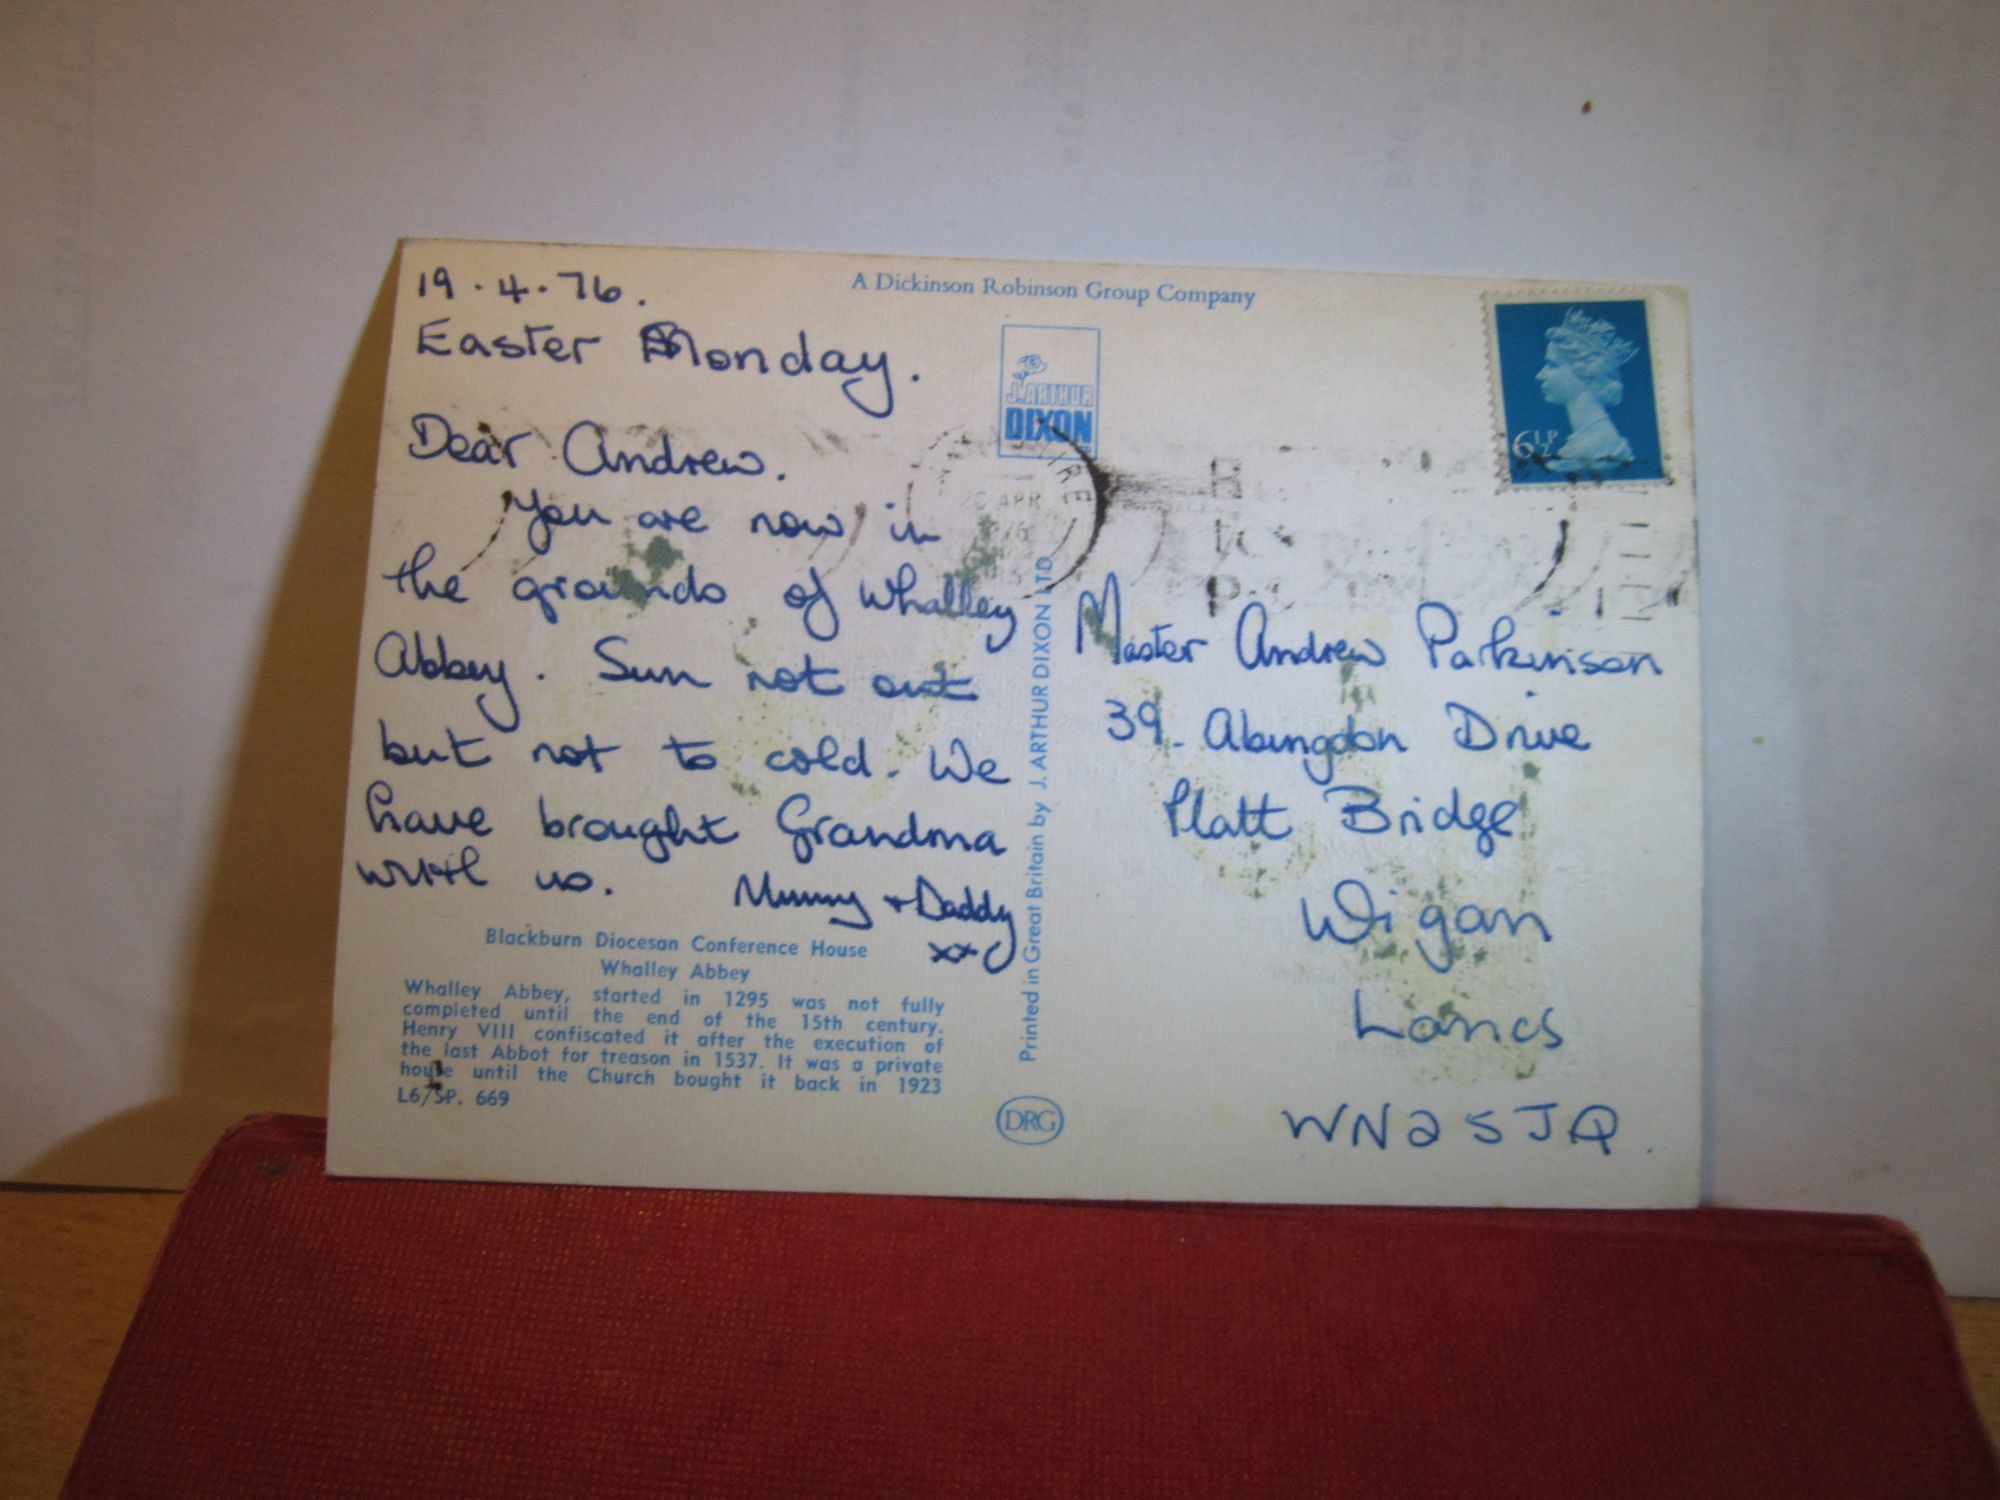 19.4.76.
Easter Monday.
Dear Andrew.
You are now in
the grounds of Whalley
Abbey. Sun not out
but not to cold. We
have brought Grandma
with us. Mummy + Daddy
xx
Blackburn Diocesan Conference House
Whalley Abbey
Whalley Abbey, started in 1295 was not fully
completed until the end of the 15th century.
Henry VIII confiscated it after the execution of
the last Abbot for treason in 1537. It was a private
house until the Church bought it back in 1923
L6/SP. 669
A Dickinson Robinson Group Company
J. ARTHUR
DIXON
Printed in Great Britain by J. ARTHUR DIXON LTD.
DRG
6½P
APR
Master Andrew Parkinson
39. Abingdon Drive
Platt Bridge
Wigan
Lancs
WN2 5JQ.